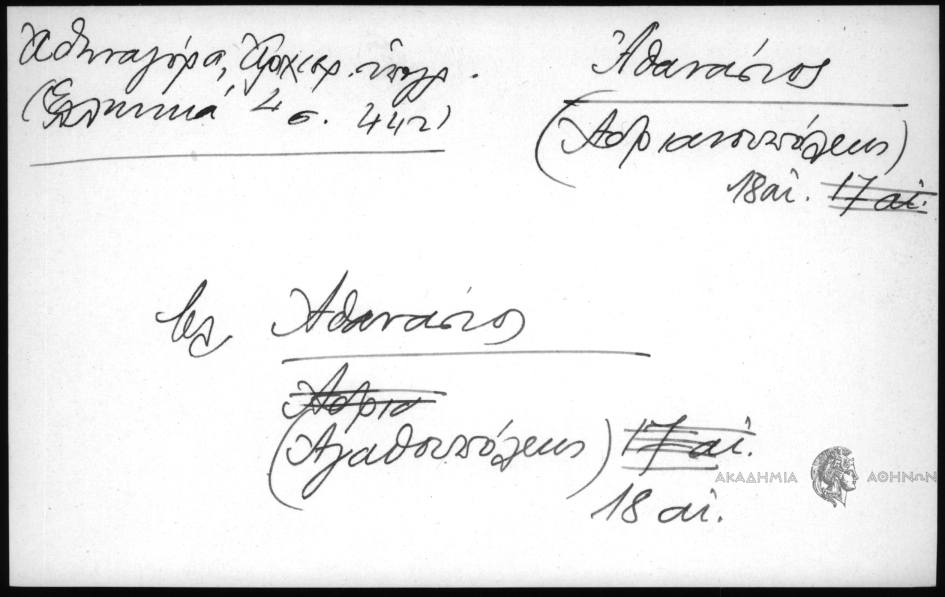 Ἀθηναγόρα, Ἀρχιερ. ὑπογρ.
(Ἑλληνικά 4 σ. 442)
Ἀθανάσιος
(Ἀδριανουπόλεως)
18 αἰ. 17 αἰ.
βλ. Ἀθανάσιος
Ἀδρια
(Ἀγαθουπόλεως) 17 αἰ.
18 αἰ.
ΑΚΑΔΗΜΙΑ ΑΘΗΝΩΝ